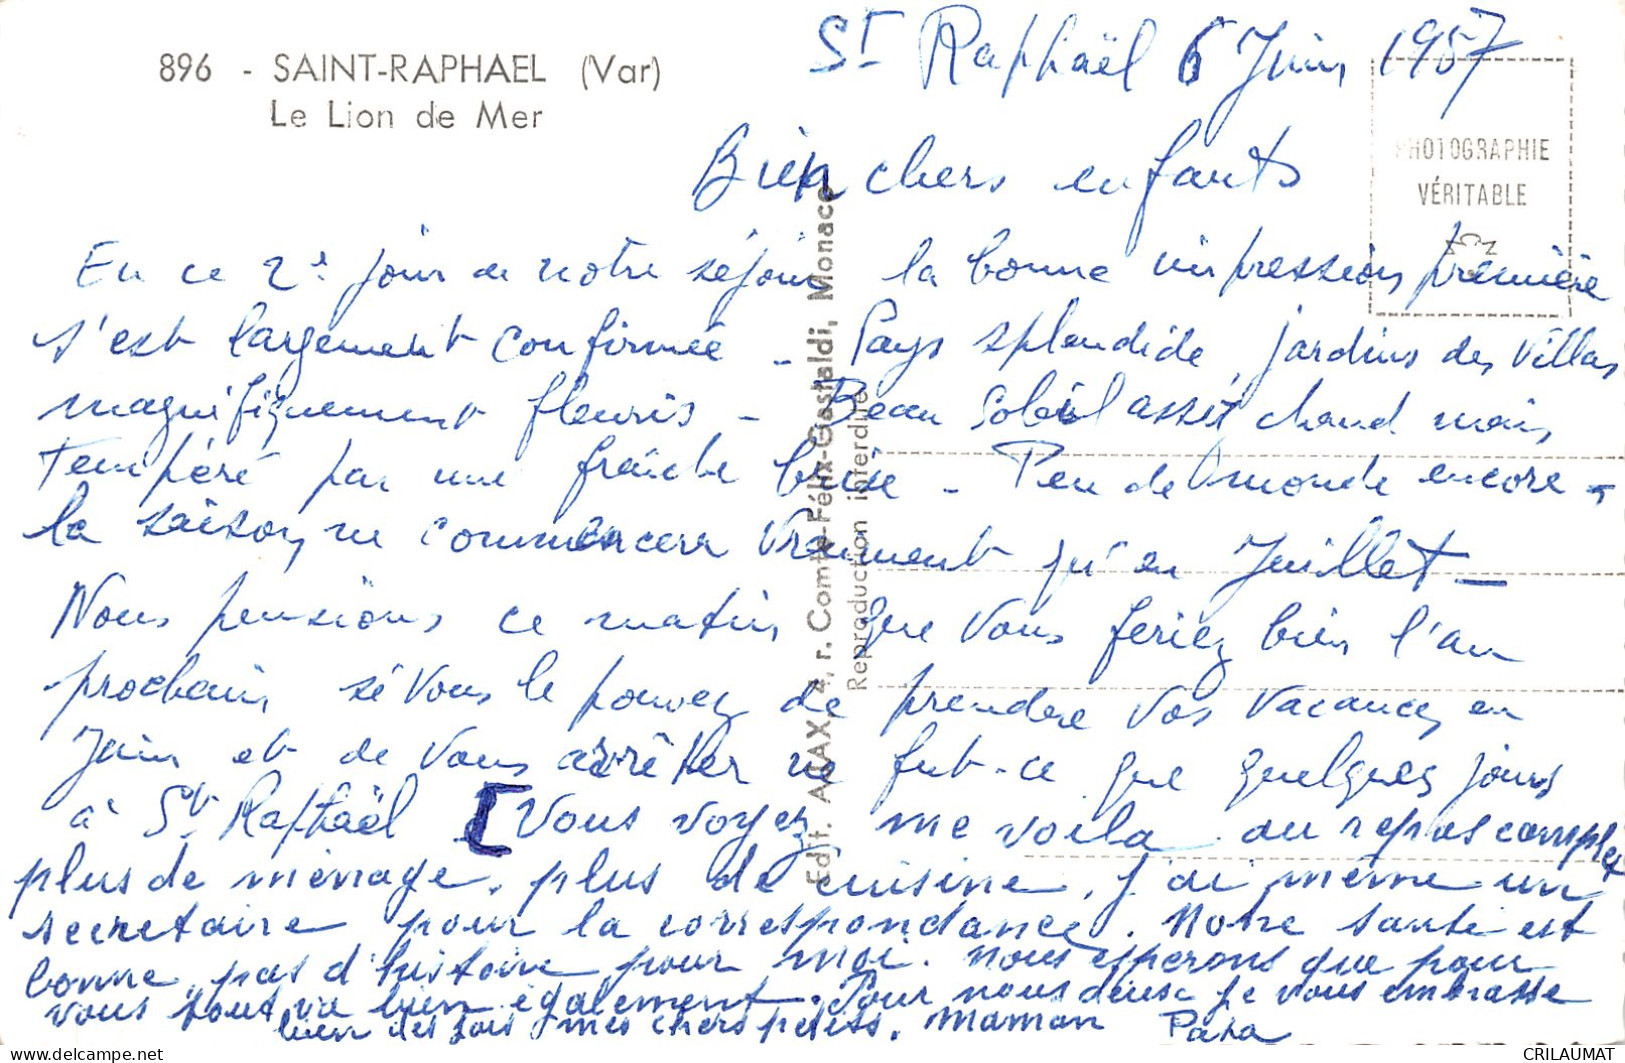 896 - SAINT-RAPHAEL (Var)
Le Lion de Mer
St Raphaël 6 Juin 1957
PHOTOGRAPHIE
VÉRITABLE
Bien chers enfants
En ce 2e jour de notre séjour la bonne impression première
s'est largement confirmée - Pays splendide, jardins des villas
magnifiquement fleuris - Beau soleil assez chaud mais
tempéré par une fraîche brise - Peu de monde encore -
la saison ne commencera vraiment qu'en Juillet -
Nous pensions ce matin que vous feriez bien l'an
prochain, si vous le pouvez de prendre vos vacances en
Juin et de vous arrêter ne fut-ce que quelques jours
à St Raphaël [Vous voyez me voila au repos complet
plus de ménage, plus de cuisine, j'ai même un
secretaire pour la correspondance. Notre santé est
bonne, pas d'histoire pour moi. nous esperons que pour
vous tout va bien également. Pour nous deux je vous embrasse
bien des fois mes chers petits. Maman Papa
Edit. AJAX, 4, r. Comte-Félix-Gastaldi, Monaco
Reproduction interdite
CRILAUMAT